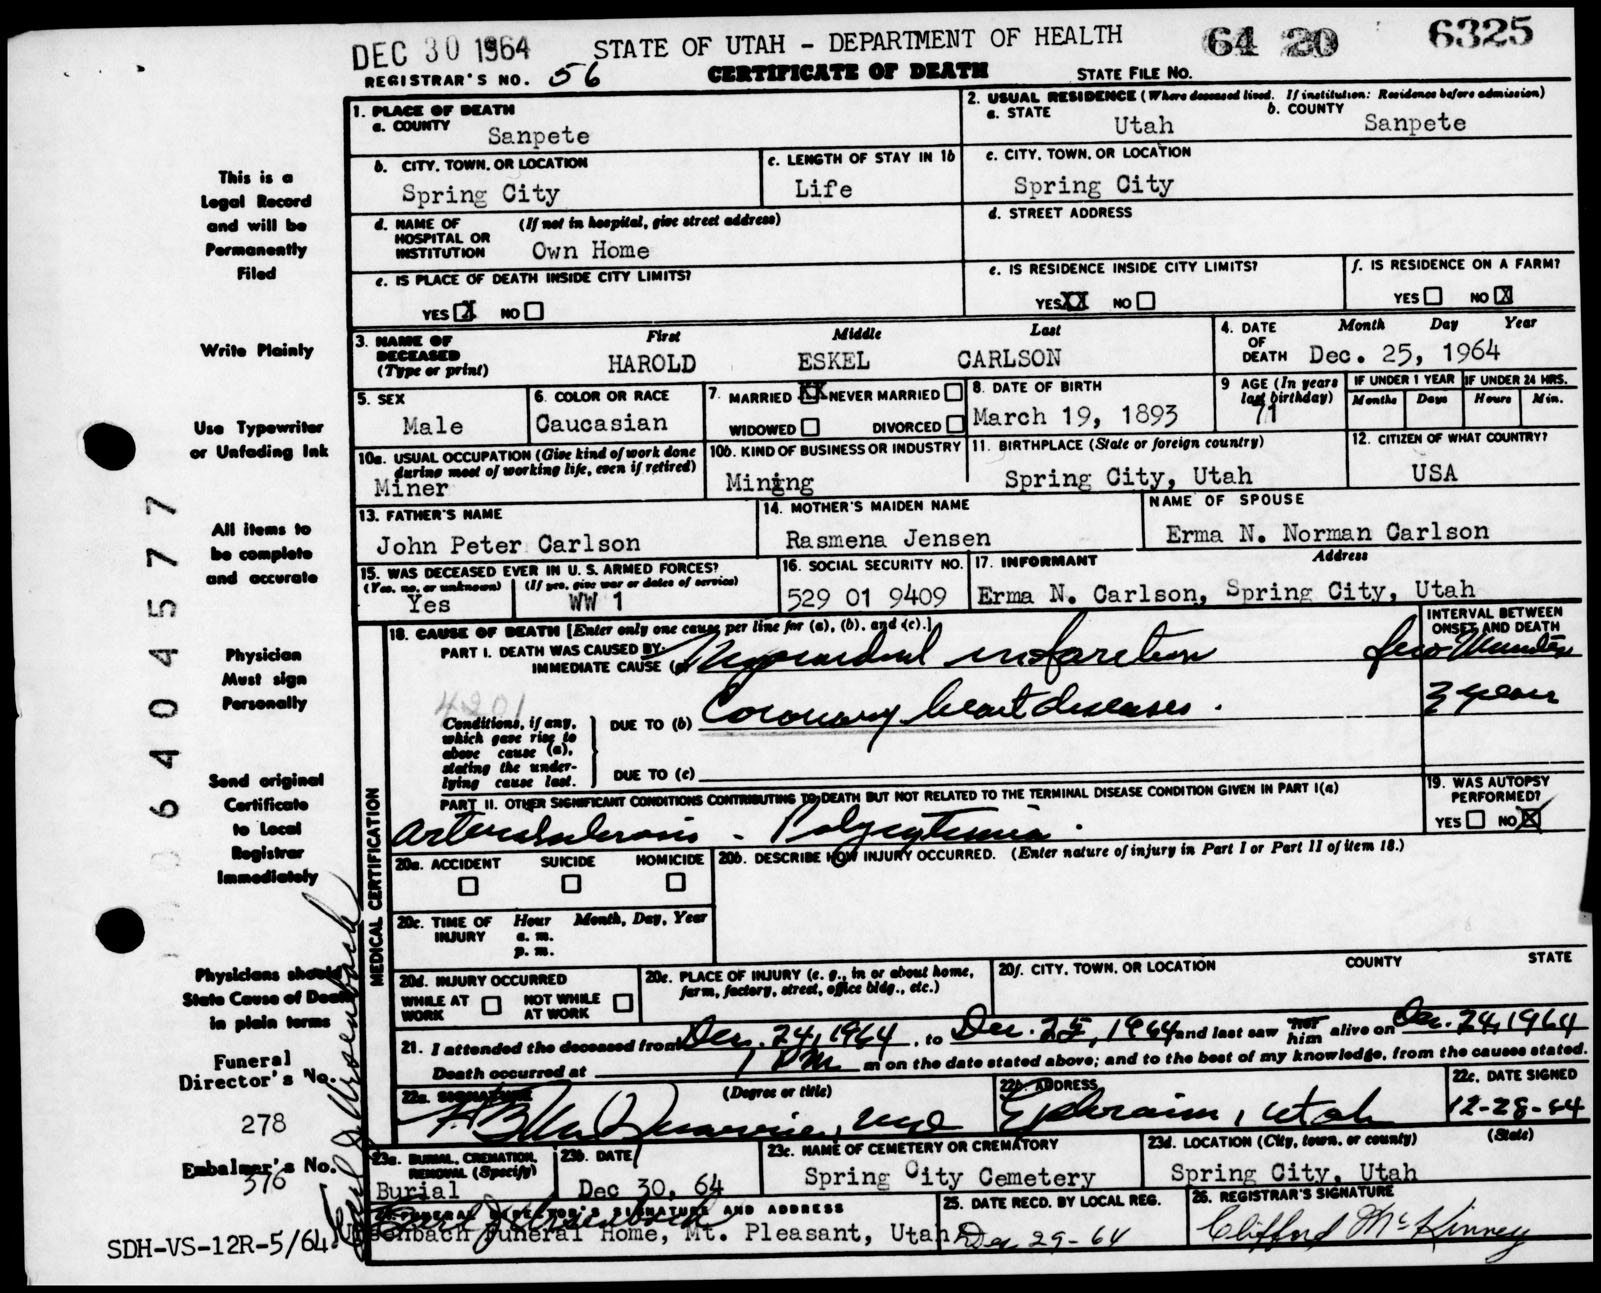 DEC 30 1964 STATE OF UTAH - DEPARTMENT OF HEALTH 64 20 6325
REGISTRAR'S NO. 56 CERTIFICATE OF DEATH STATE FILE NO.
1. PLACE OF DEATH
a. COUNTY Sanpete
2. USUAL RESIDENCE (Where deceased lived. If institution: Residence before admission)
a. STATE Utah b. COUNTY Sanpete
b. CITY, TOWN, OR LOCATION Spring City
c. LENGTH OF STAY IN 1b Life
c. CITY, TOWN, OR LOCATION Spring City
d. NAME OF HOSPITAL OR INSTITUTION (If not in hospital, give street address) Own Home
d. STREET ADDRESS
e. IS PLACE OF DEATH INSIDE CITY LIMITS?
YES X NO
e. IS RESIDENCE INSIDE CITY LIMITS?
YES XX NO
f. IS RESIDENCE ON A FARM?
YES NO X
3. NAME OF DECEASED (Type or print)
First Middle Last
HAROLD ESKEL CARLSON
4. DATE OF DEATH Month Day Year
Dec. 25, 1964
5. SEX Male
6. COLOR OR RACE Caucasian
7. MARRIED XX NEVER MARRIED
WIDOWED DIVORCED
8. DATE OF BIRTH March 19, 1893
9 AGE (In years last birthday) 71
IF UNDER 1 YEAR Months Days
IF UNDER 24 HRS. Hours Min.
10a. USUAL OCCUPATION (Give kind of work done during most of working life, even if retired)
Miner
10b. KIND OF BUSINESS OR INDUSTRY
Mining
11. BIRTHPLACE (State or foreign country)
Spring City, Utah
12. CITIZEN OF WHAT COUNTRY?
USA
13. FATHER'S NAME
John Peter Carlson
14. MOTHER'S MAIDEN NAME
Rasmena Jensen
NAME OF SPOUSE
Erma N. Norman Carlson
15. WAS DECEASED EVER IN U. S. ARMED FORCES?
(Yes, no, or unknown) (If yes, give war or dates of service)
Yes WW 1
16. SOCIAL SECURITY NO.
529 01 9409
17. INFORMANT Address
Erma N. Carlson, Spring City, Utah
MEDICAL CERTIFICATION
18. CAUSE OF DEATH [Enter only one cause per line for (a), (b), and (c).]
INTERVAL BETWEEN ONSET AND DEATH
PART I. DEATH WAS CAUSED BY:
IMMEDIATE CAUSE (a) Myocardial infarction
4201
Conditions, if any, which gave rise to above cause (a), stating the underlying cause last.
DUE TO (b) Coronary heart diseases.
DUE TO (c)
PART II. OTHER SIGNIFICANT CONDITIONS CONTRIBUTING TO DEATH BUT NOT RELATED TO THE TERMINAL DISEASE CONDITION GIVEN IN PART I(a)
Arteriosclerosis - Polycythemia.
19. WAS AUTOPSY PERFORMED?
YES NO X
20a. ACCIDENT SUICIDE HOMICIDE
20b. DESCRIBE HOW INJURY OCCURRED. (Enter nature of injury in Part I or Part II of item 18.)
20c. TIME OF INJURY Hour Month, Day, Year
a. m.
p. m.
20d. INJURY OCCURRED
WHILE AT WORK NOT WHILE AT WORK
20e. PLACE OF INJURY (e. g., in or about home, farm, factory, street, office bldg., etc.)
20f. CITY, TOWN, OR LOCATION COUNTY STATE
21. I attended the deceased from Dec. 24, 1964, to Dec. 25, 1964 and last saw her him alive on Dec. 24, 1964
Death occurred at 1 PM m on the date stated above; and to the best of my knowledge, from the causes stated.
22a. SIGNATURE (Degree or title)
22b. ADDRESS
Ephraim, Utah
22c. DATE SIGNED
12-28-64
23a. BURIAL, CREMATION, REMOVAL (Specify)
Burial
23b. DATE
Dec 30, 64
23c. NAME OF CEMETERY OR CREMATORY
Spring City Cemetery
23d. LOCATION (City, town, or county) (State)
Spring City, Utah
24. FUNERAL DIRECTOR'S SIGNATURE AND ADDRESS
Ursenbach Funeral Home, Mt. Pleasant, Utah
25. DATE RECD. BY LOCAL REG.
Dec 29-64
26. REGISTRAR'S SIGNATURE
Clifford McKinney
This is a
Legal Record
and will be
Permanently
Filed
Write Plainly
Use Typewriter
or Unfading Ink
All items to
be complete
and accurate
Physician
Must sign
Personally
Send original
Certificate
to Local
Registrar
Immediately
Physicians should
State Cause of Death
in plain terms
Funeral
Director's No.
278
Embalmer's No.
376
SDH-VS-12R-5/64
6404577